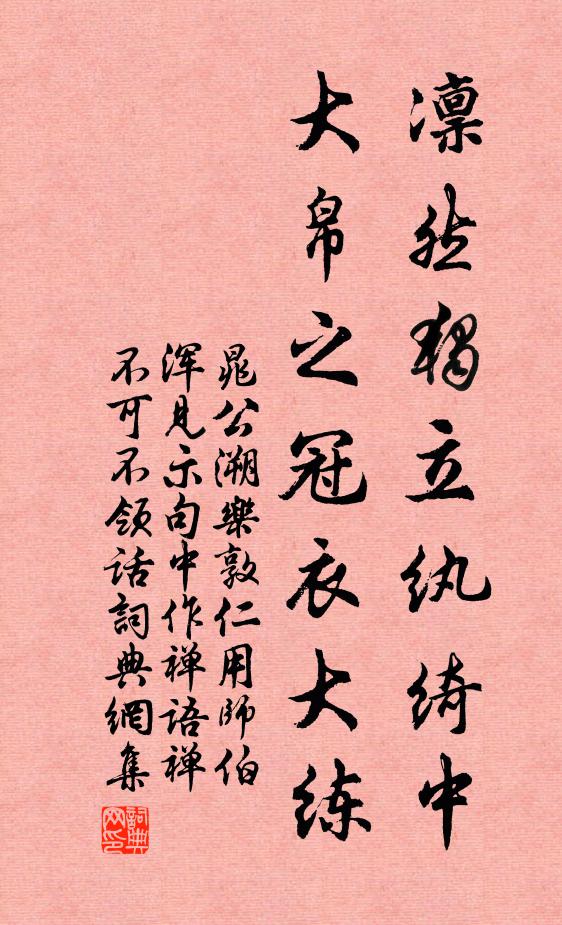 凛然獨立纨绮中
大帛之冠衣大练
晁公溯樂敦仁用師伯
浑見示句中作禅語禅
不可不领话詞典網集
詞典网印